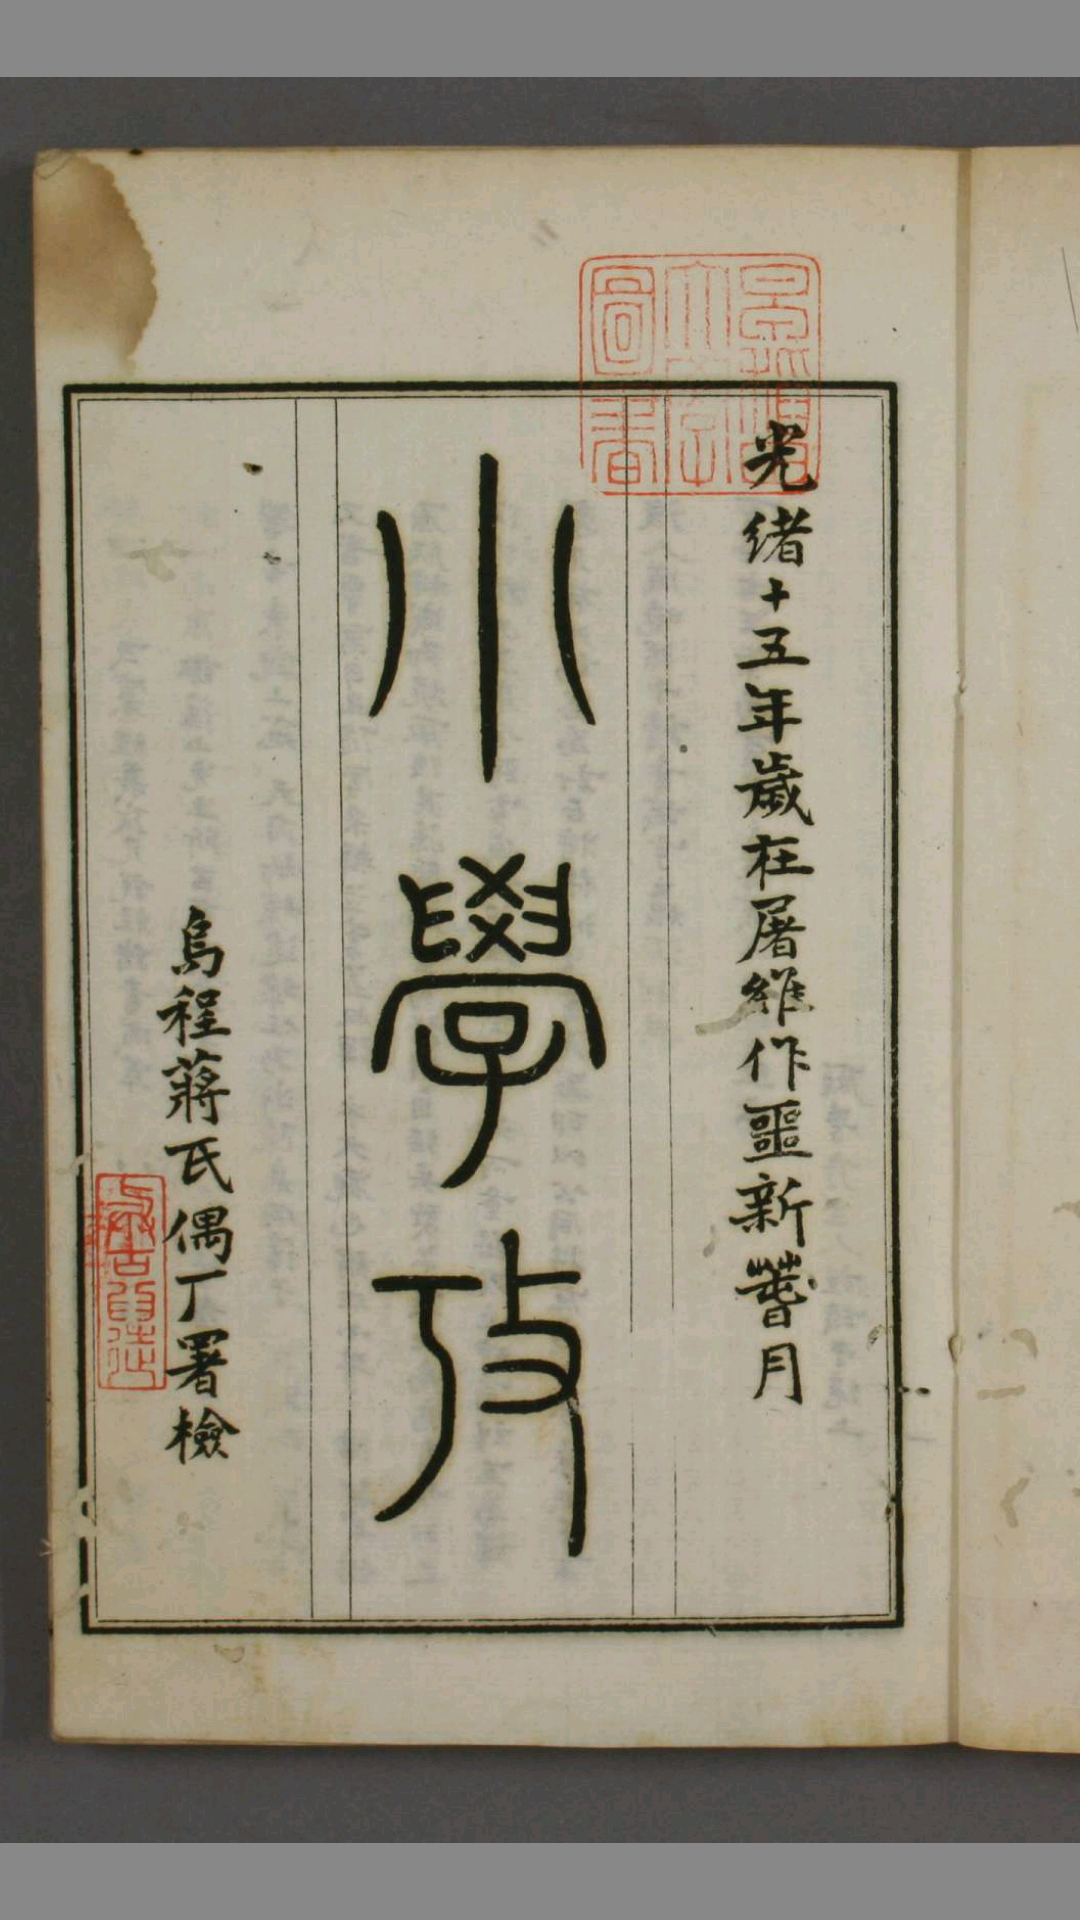 光緒十五年歲在屠維作噩新蓂月
小學攷
烏程蔣氏偶厂署檢